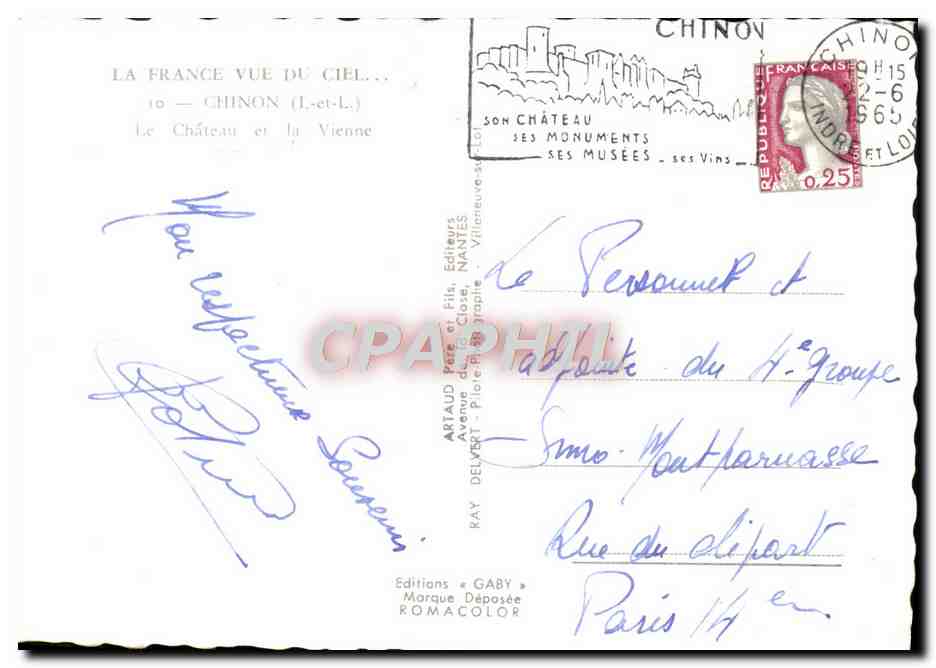 LA FRANCE VUE DU CIEL...
10 — CHINON (I.-et-L.)
Le Château et la Vienne
CHINON
SON CHÂTEAU
SES MONUMENTS
SES MUSÉES - ses Vins -
CHINON
9H15
2-6
1965
INDRE ET LOIRE
REPUBLIQUE FRANÇAISE
0,25
Mon respectueux Souvenir
ARTAUD Père et Fils, Editeurs
Avenue de la Close, NANTES
RAY DELVERT - Pilote-Photographe - Villeneuve-sur-Lot
CPAPHIL
Le Personnel et
adjointe du 4e groupe
Simo-Montparnasse
Rue du départ
Paris 14em
Editions « GABY »
Marque Déposée
ROMACOLOR